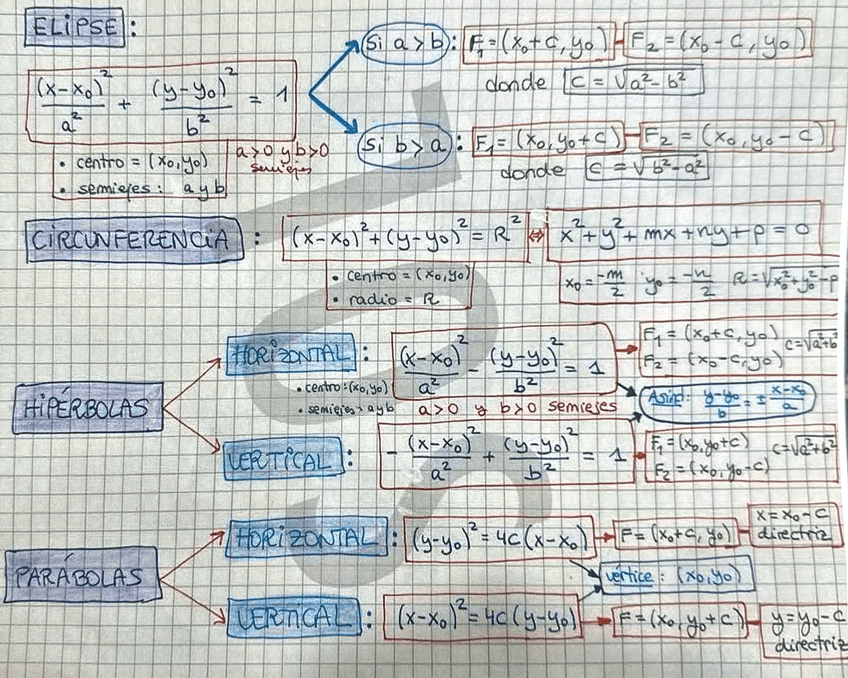 ELIPSE:
(x-x₀)²/a² + (y-y₀)²/b² = 1
• centro = (x₀, y₀)
• semiejes: a y b
a>0 y b>0
semiejes
Si a>b: F₁=(x₀+c, y₀) - F₂=(x₀-c, y₀)
donde c=√a²-b²
Si b>a: F₁=(x₀, y₀+c) - F₂=(x₀, y₀-c)
donde c=√b²-a²
CIRCUNFERENCIA: (x-x₀)²+(y-y₀)²=R² ⇔ x²+y²+mx+ny+p=0
• centro = (x₀, y₀)
• radio = R
x₀=-m/2 y₀=-n/2 R=√x₀²+y₀²-p
HIPÉRBOLAS
HORIZONTAL: (x-x₀)²/a² - (y-y₀)²/b² = 1
F₁=(x₀+c, y₀)
F₂=(x₀-c, y₀)
c=√a²+b²
• centro: (x₀, y₀)
• semiejes: a y b
a>0 y b>0 semiejes
Asínt: y-y₀/b = ± x-x₀/a
VERTICAL: -(x-x₀)²/a² + (y-y₀)²/b² = 1
F₁=(x₀, y₀+c)
F₂=(x₀, y₀-c)
c=√a²+b²
PARÁBOLAS
HORIZONTAL: (y-y₀)²=4c(x-x₀) → F=(x₀+c, y₀)
x=x₀-c
directriz
vértice: (x₀, y₀)
VERTICAL: (x-x₀)²=4c(y-y₀) → F=(x₀, y₀+c)
y=y₀-c
directriz